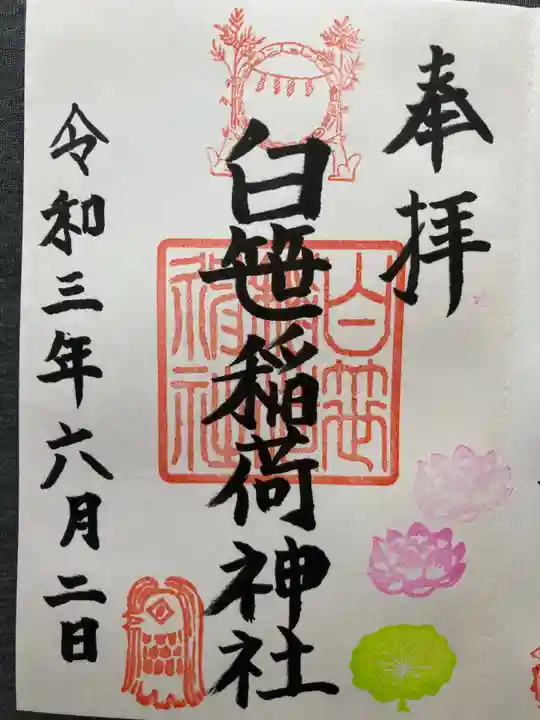 奉拝
白笹稲荷神社
白笹
稲荷
神社
令和三年六月二日